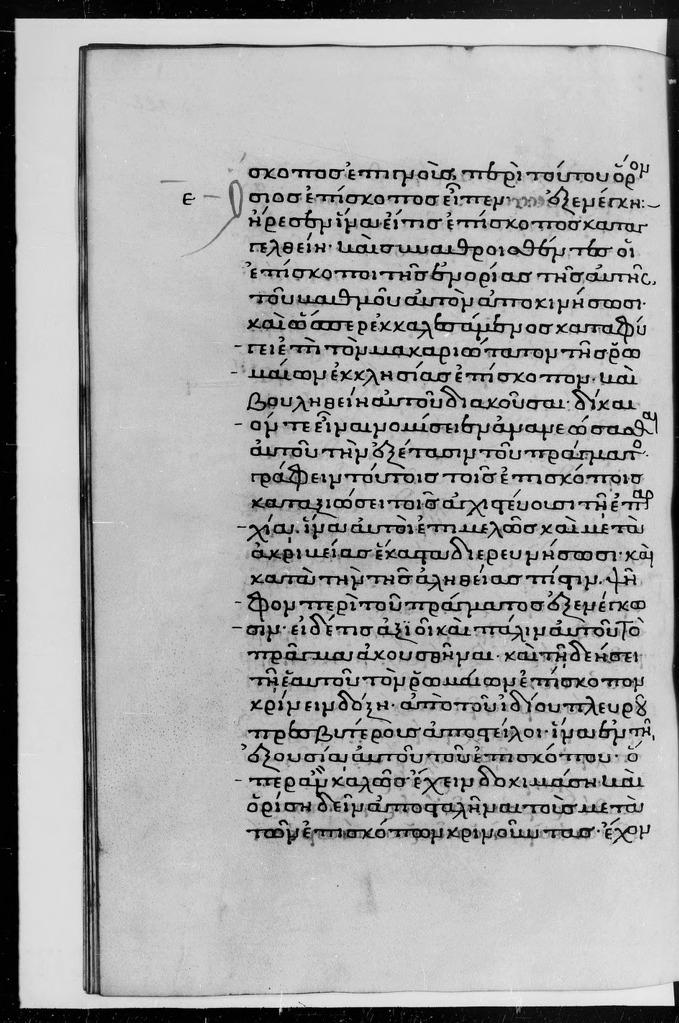 σκοπος ἐπιγνοὺς περὶ τούτου ὅρον
ε σιος ἐπίσκοπος εἶπεν ἐξενέγκη:
ἤρεσεν ἵνα εἴ τις ἐπίσκοπος καταγ
γελθείη. καὶ συναθροισθέντες οἱ
ἐπίσκοποι τῆς ἐνορίας τῆς αὐτῆς,
τοῦ βαθμοῦ αὐτὸν ἀποκινήσωσι.
καὶ ὥσπερ ἐκκαλεσάμενος καταφύ
γει ἐπὶ τὸν μακαριώτατον τῆς ῥω
μαίων ἐκκλησίας ἐπίσκοπον. καὶ
βουληθείη αὐτοῦ διακοῦσαι. δίκαι
όν τε εἶναι νομίσει ἐν ἀνανεώσασθαι
αὐτοῦ τὴν ἐξέτασιν τοῦ πράγματος.
γράφειν τούτοις τοῖς ἐπισκόποις
καταξιώσει τοῖς ἀγχιστεύουσι τῆ ἐπαρ
χία. ἵνα αὐτοὶ ἐπιμελῶς καὶ μετὰ
ἀκριβείας ἕκαστα διερευνήσωσι. καὶ
κατὰ τὴν τῆς ἀληθείας πίστιν. ψῆ
φον περὶ τοῦ πράγματος ἐξενέγκω
σιν. εἰ δέ τις ἀξιοῖ καὶ πάλιν αὐτοῦ τὸ
πράγμα ἀκουσθῆναι. καὶ τῆ δεήσει
τῆ ἑαυτοῦ τὸν ῥωμαίων ἐπίσκοπον
κρίνειν δόξη. ἀπὸ τοῦ ἰδίου πλευροῦ
πρεσβυτέρους ἀποστείλοι. ἵνα ἐν τῆ
ἐξουσία αὐτοῦ τοῦ ἐπισκόπου. ὅ
περ ἂν καλῶς ἔχειν δοκιμάση καὶ
ὁρίση δεῖν ἀποσταλῆναι τοὺς μετὰ
τῶν ἐπισκόπων κρινοῦντας. ἔχον